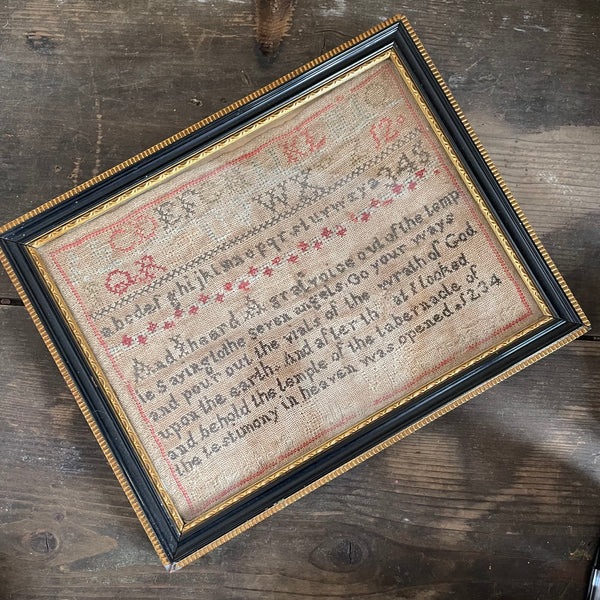 CDEFGHIKL
QR WX
abcdefghijklmnopqrstuvwxyz 346
And I heard A great voice out of the temp
le saying to the seven angels. Go your ways
and pour out the vials of the wrath of God
upon the earth. And after th at I looked
and behold the temple of the tabernacle of
the testimony in heaven was opened 234